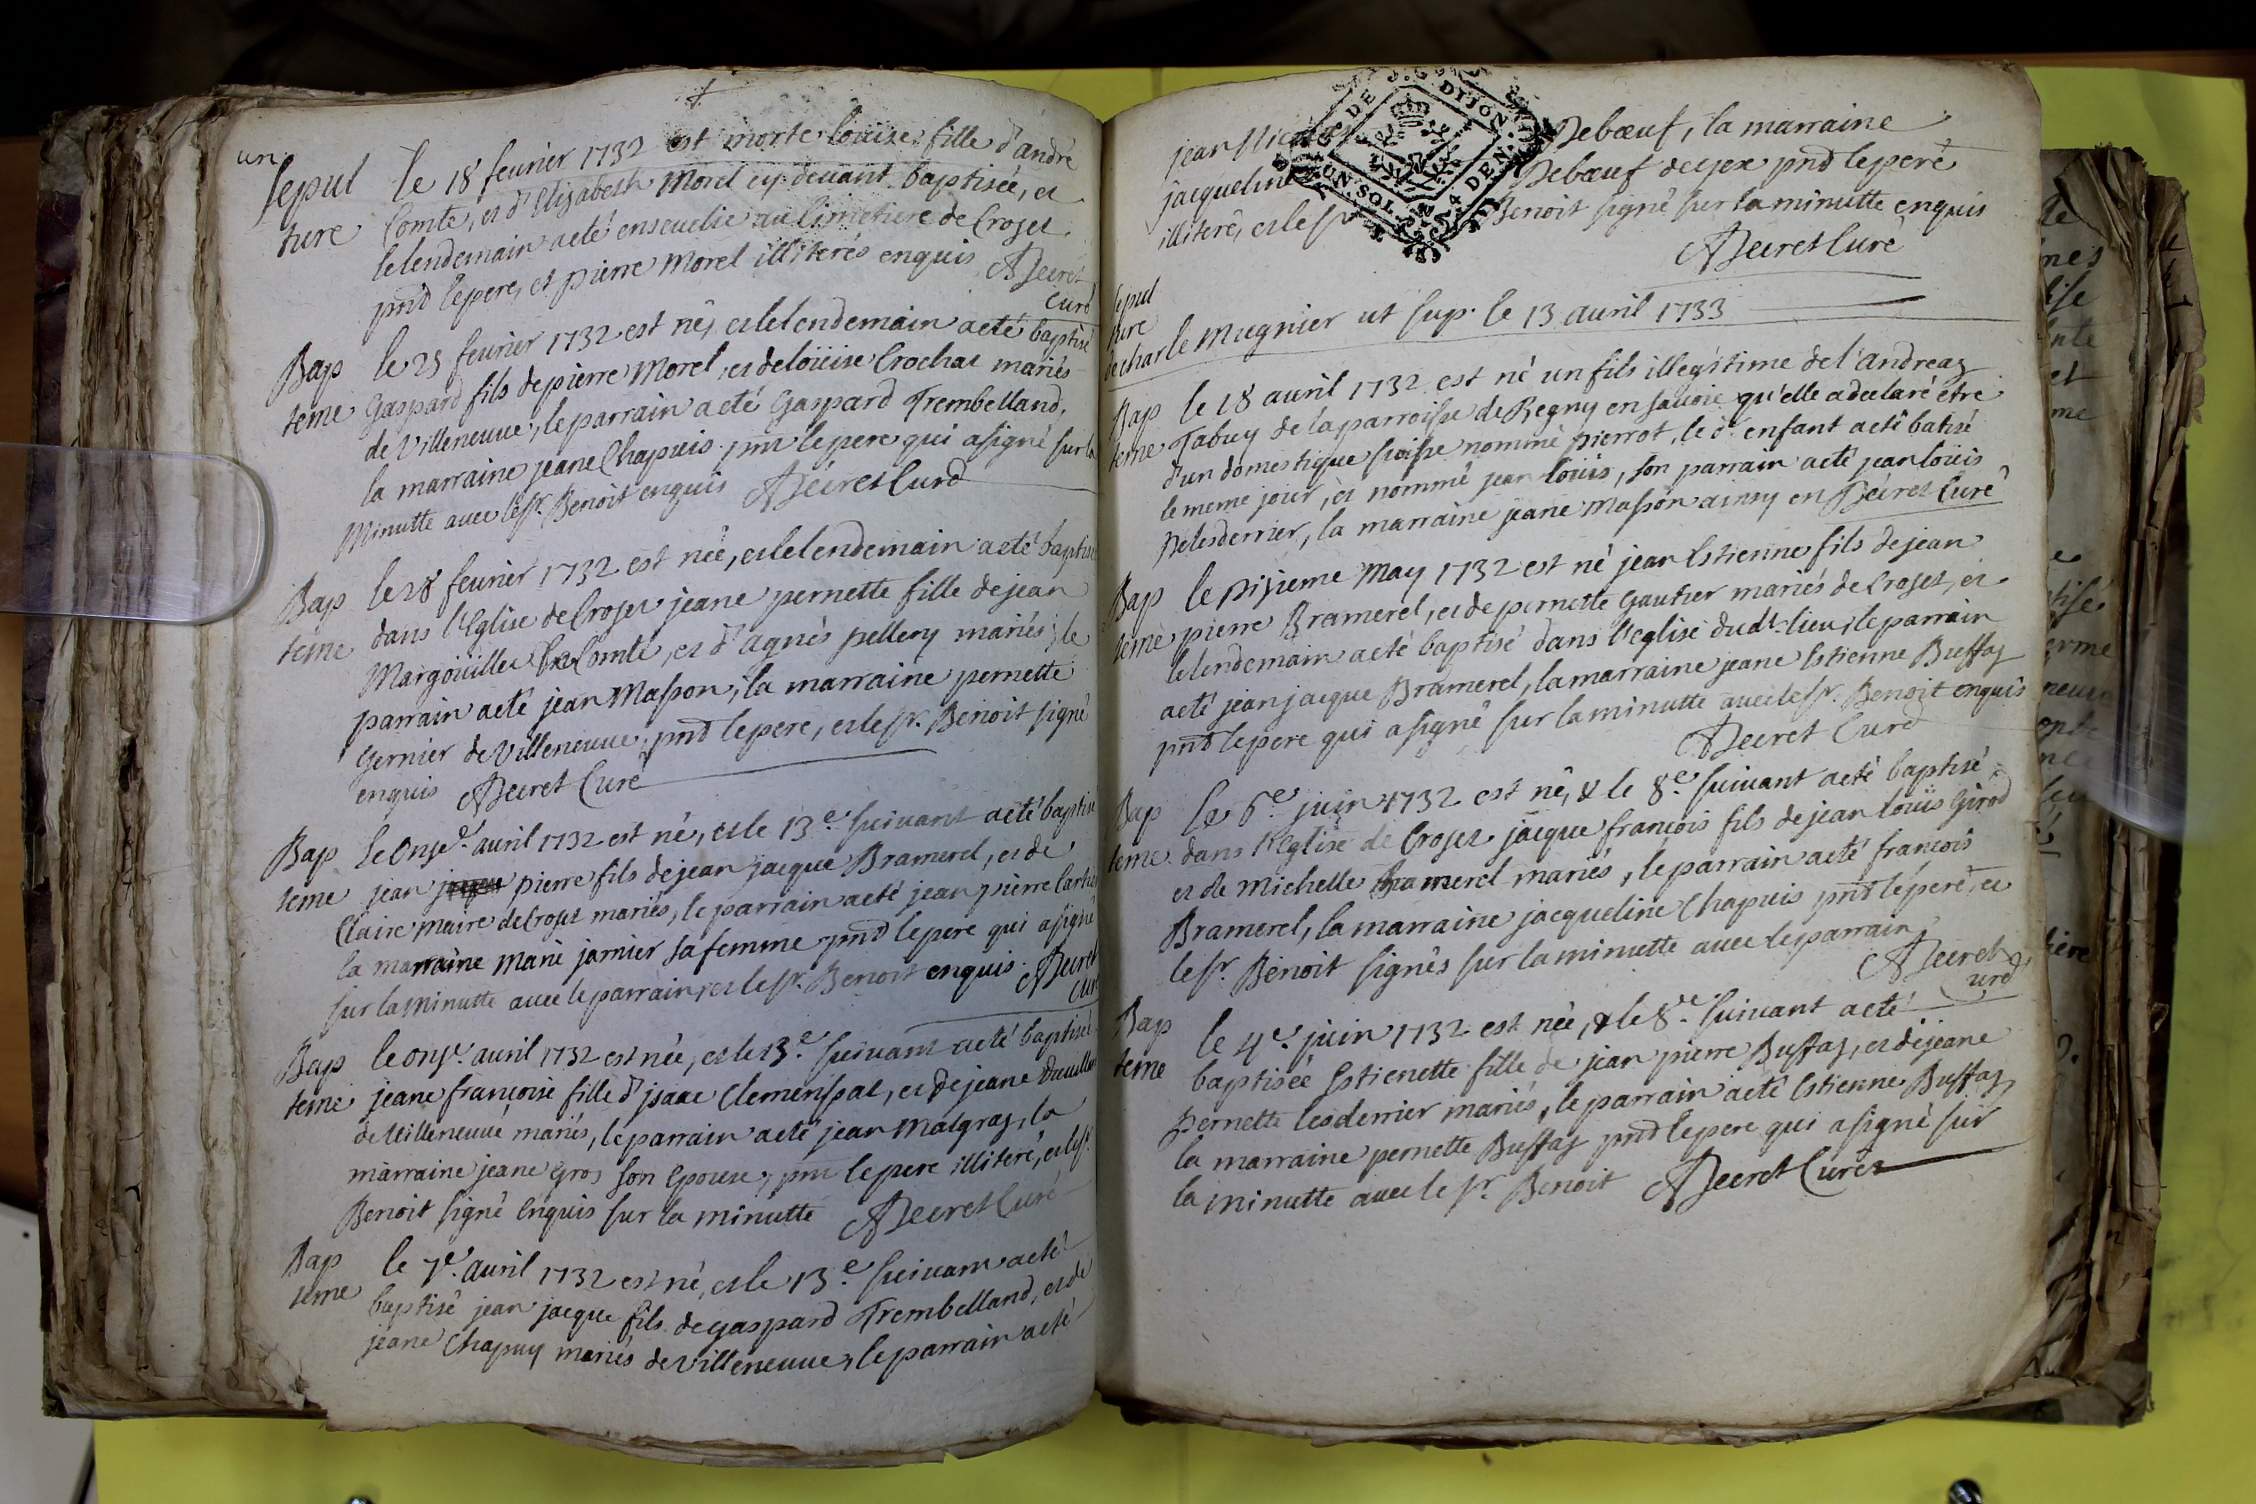 un
sepul le 18 feurier 1732 est morte loüise fille d'andré
ture Comte, et d'Elizabeth Morel cy deuant baptisée, et
le lendemain aeté enseuelie au Cimetiere de Crozet
pnt le pere, et pierre Morel illiterés enquis ADecret
Curé
Bap le 25 feurier 1732 est né, et le lendemain aeté baptisé
teme Gaspard fils de pierre Morel, et de loüise Crochat mariés
de Villeneuue, le parrain aeté Gaspard Trembelland,
la marraine jeane Chapuis, pnt le pere qui asigné sur la
Minutte auec le sr. Benoit enquis ADecret Curé
Bap le 28 feurier 1732 est née, et le lendemain aeté baptisée
teme dans l'Eglise de Crozet jeane pernette fille de jean
Margoüillet Comte, et d'agnés pellery mariés, le
parrain aeté jean Masson, la marraine pernette
Gernier de Villeneuue, pnt le pere, et le sr. Benoit signé
enquis ADecret Curé
Bap le Onze. auril 1732 est né, et le 13e. suiuant aeté baptisé
teme jean pierre fils de jean jacque Bramerel, et de
Claire Maire de Crozet mariés, le parrain aeté jean pierre
la marraine Marie jarnier sa femme pnt le pere qui asigné
sur la minutte auec le parrain, et le sr. Benoit enquis. ADecret
Curé
Bap le onze. auril 1732 est née, et le 13e. suiuant aeté baptisée
teme jeane françoise fille d'jsaac Clemenssat, et de jeane
de Villeneuue mariés, le parrain aeté jean Malgraz, la
marraine jeane Gros son Epouse, pnt le pere illiteré, et le sr.
Benoit signé Enquis sur la minutte ADecret Curé
Bap le 7e. auril 1732 est né, et le 13e. suiuant aeté
teme baptisé jean jacque fils de gaspard Trembelland, et de
jeane Chapuy mariés de Villeneuue, le parrain aeté
jean Deboeuf, la marraine
jacqueline Deboeuf degex pnt le peré
illiteré, et le sr Benoit signé sur la minutte enquis
ADecret Curé
sepul
ture
de charle Mugnier ut sup. le 13 auril 1733
Bap le 18 auril 1732 est né un fils illegitime de l'andreaz
teme Tabuy de la parroisse de Regny en sauoie qu'elle a declaré être
d'un domestique suisse nommé pierrot, le d. enfant aeté batisé
le meme jour, et nommé jean loüis, son parrain aeté jean loüis
Delesderrier, la marraine jeane Masson ainsy en ADecret Curé
Bap le Dizieme May 1732 est né jean Estienne fils de jean
teme pierre Bramerel, et de pernette Gautier mariés de Crozet, et
le lendemain aeté baptisé dans l'eglise dudt. lieu, le parrain
aeté jean jacque Bramerel, la marraine jeane Estienne Buffaz
pnt le pere qui asigné sur la minutte auec le sr. Benoit enquis
ADecret Curé
Bap Le 6e. juin 1732 est né, & le 8e. suiuant aeté baptisé
teme dans l'Eglise de Crozet jacque françois fils de jean loüis Girod
et de Michelle Bramerel mariés, le parrain aeté françois
Bramerel, la marraine jacqueline Chapuis pnt le peré, et
le sr. Benoit signés sur la minutte auec le parrain,
ADecret
Curé
Bap le 4e. juin 1732 est née, & le 8e. suiuant aeté
teme baptisée Estienette fille de jean pierre Buffaz, et de jeane
pernette lesderrier mariés, le parrain aeté Estienne Buffaz,
la marraine pernette Buffaz pnt le pere qui asigné sur
la minutte auec le sr. Benoit ADecret Curé
DIJON